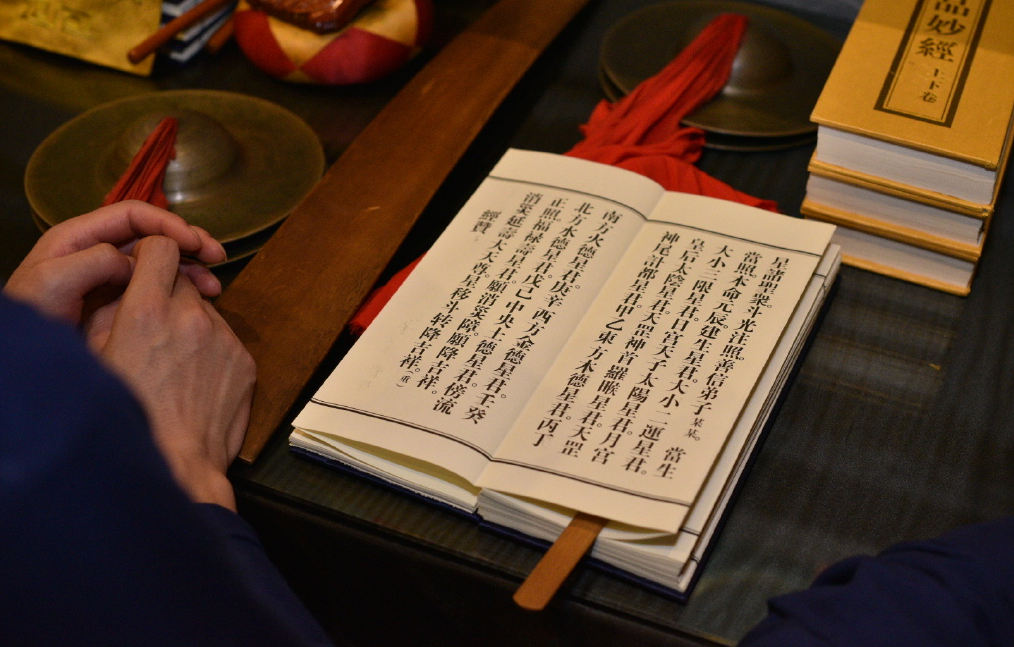 星諸聖衆。斗光注照。善信弟子某某。當生
當照。本命元辰。建生星君。大小二運星君。
大小三限星君。日宮天子太陽星君。月宮
皇后太陰星君。天罡神首羅睺星君。天罡
神尾計都星君。甲乙東方木德星君。丙丁
南方火德星君。庚辛西方金德星君。壬癸
北方水德星君。戊己中央土德星君。傍流
正照福禄壽星君。願消災障願降吉祥。
消災延壽大天尊。星移斗转降吉祥。(重)
經贊
品妙經
上下卷